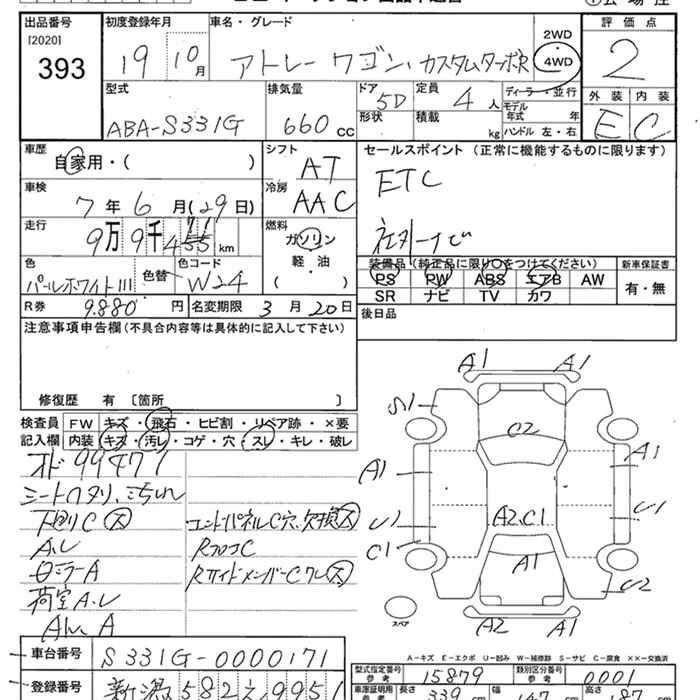 出品番号
[2020]
393
初度登録年月
19 10月
車名・グレード
アトレーワゴン、カスタムターボR
2WD
4WD
評価点
2
外装 内装
E C
型式
ABA-S331G
排気量
660 CC
ドア
5D
形状
定員
4人
積載
kg
ディーラー・並行
モデル
年式 年
ハンドル 左・右
車歴
自家用・( )
シフト
AT
セールスポイント (正常に機能するものに限ります)
ETC
社外ナビ
車検
7年 6月(29日)
冷房
AAC
走行
9万9千471 km
燃料
ガソリン
軽・油
( )
色
パールホワイトIII
色替
色コード
W24
装備品 (純正品に限り○をつけてください)
PS PW ABS エアB AW
SR ナビ TV カワ
新車保証書
有・無
R券 9.880円
名変期限 3月20日
後日品
注意事項申告欄(不具合内容等は具体的に記入して下さい)
修復歴 有 〔箇所 〕
検査員
記入欄
FW キズ・飛石・ヒビ割・リペア跡・×要
内装 キズ・汚レ・コゲ・穴・スレ・キレ・破レ
オド99471
シートヘタリ、
下回りC ㋜
A.レ
ロミラーA
荷室A.レ
エンドパネルC穴、欠損㋜
RフロコC
RサイドメンバーCクレ㋜
A1 A1
C2
A1
A1
U1
U1
C1
A2.C1
A1
U2
A2 A1
スペア
A-キズ E-エクボ U-凹み W-補修跡 S-サビ C-腐食 ××-交換済
車台番号 S331G-0000171
登録番号 新潟582え9951
型式指定番号
参考
15879
類別区分番号
参考
0001
車庫証明用
参考
長さ 339 cm
幅 147
高さ 187 cm